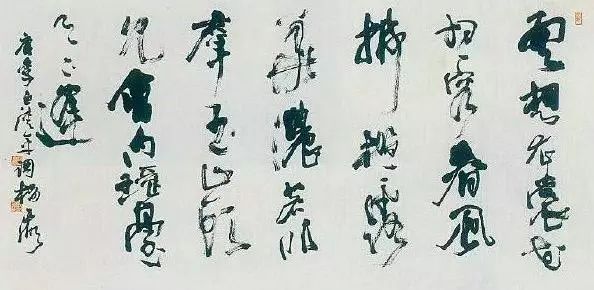 雲想衣裳花
想容春風
拂檻露
華濃若非
群玉山頭
見會向瑤臺
月下逢
唐李白清平調